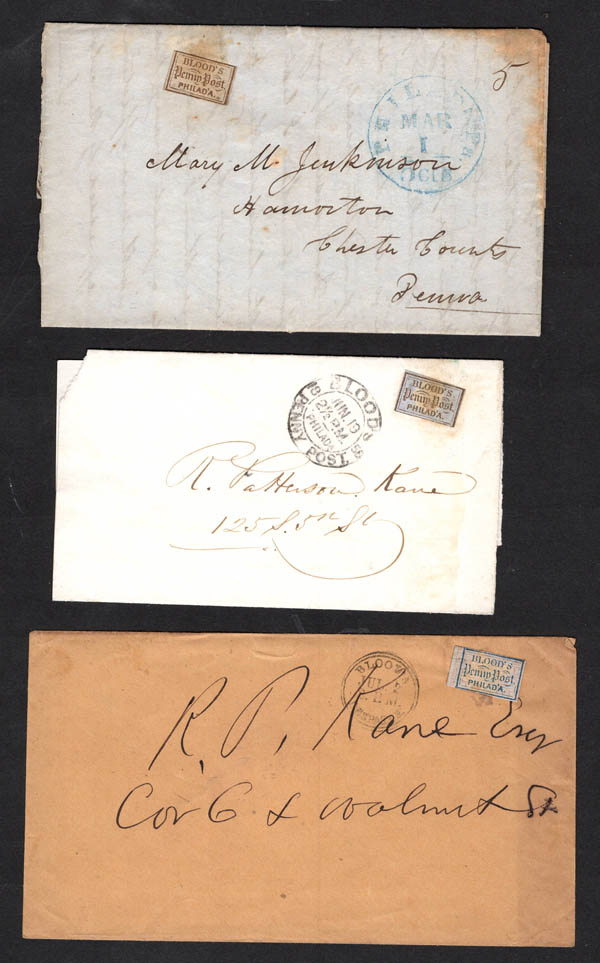 BLOOD'S
Penny Post.
PHILAD'A.
5
MAR
1
Mary M. Jenkinson
Hamorton
Chester County
Penna
BLOOD'S
PENNY POST
2½ P.M.
PHILADA
BLOOD'S
Penny Post.
PHILAD'A.
R. Patterson Kane
125 S. 5th St
BLOOD'S
BLOOD'S
Penny Post.
PHILAD'A.
R. P. Kane Esq
Cor 6 & Walnut St.